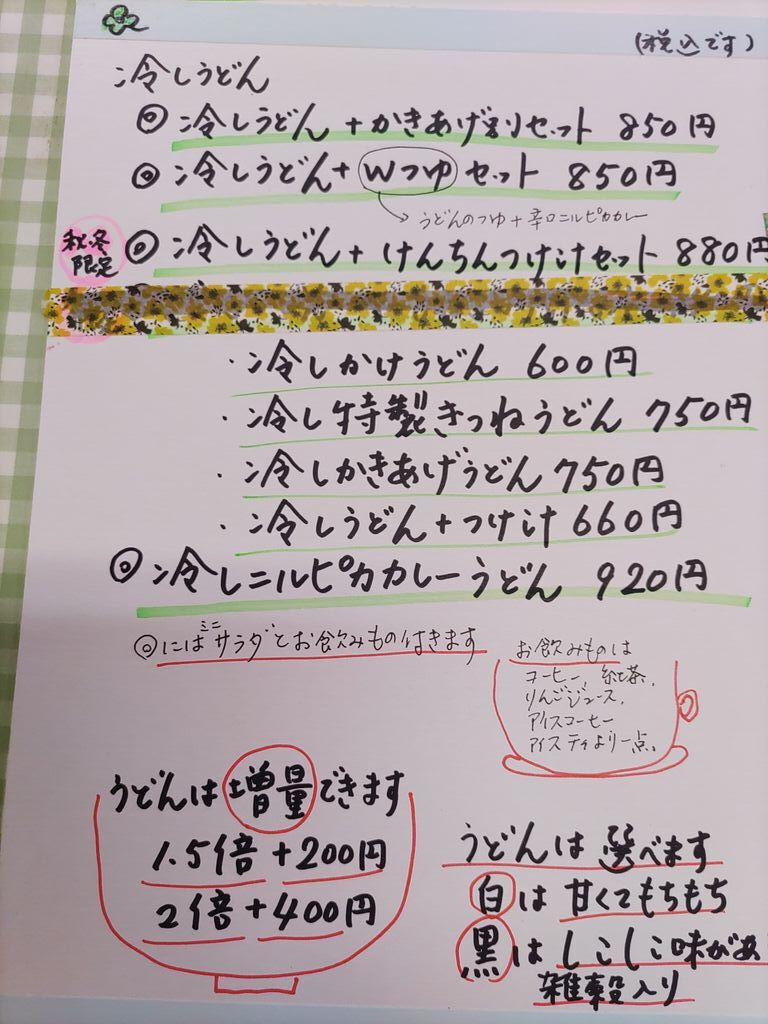 (税込です)
冷しうどん
◎冷しうどん+かきあげ割りセット 850円
◎冷しうどん+Wつゆセット 850円
うどんのつゆ+辛口ニルピカカレー
秋冬限定 ◎冷しうどん+けんちんつけ汁セット 880円
・冷しかけうどん 600円
・冷し特製きつねうどん 750円
・冷しかきあげうどん 750円
・冷しうどん+つけ汁 660円
◎冷しニルピカカレーうどん 920円
◎にはミニサラダとお飲みもの付きます
お飲みものは
コーヒー、紅茶、
りんごジュース、
アイスコーヒー
アイスティより一点。
うどんは増量できます
1.5倍+200円
2倍+400円
うどんは選べます
白は甘くてもちもち
黒はしこしこ味があ
雑穀入り